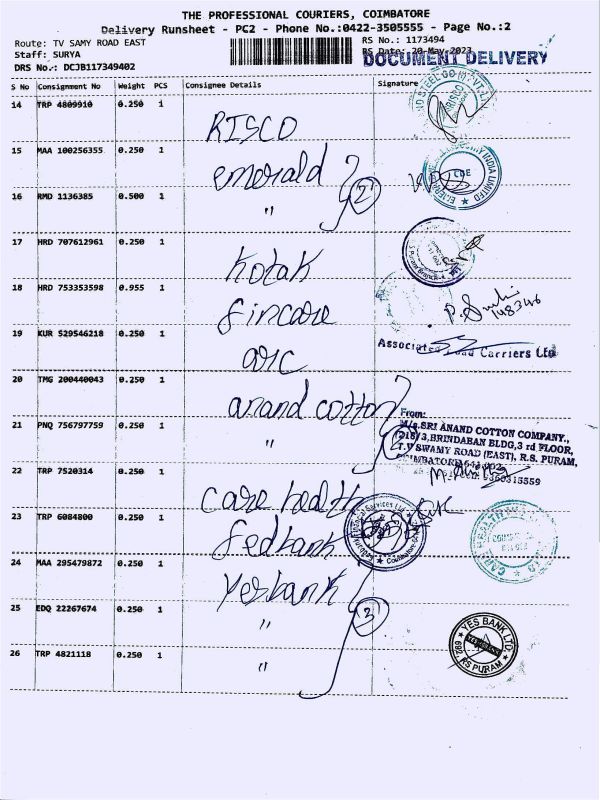 THE PROFESSIONAL COURIERS, COIMBATORE
Delivery Runsheet - PC2 - Phone No.:0422-3505555 - Page No.:2
Route: TV SAMY ROAD EAST
RS No.: 1173494
Staff: SURYA
RS Date: 20-May-2023
DOCUMENT DELIVERY
DRS No.: DCJB117349402
S No Consignment No Weight PCS Consignee Details Signature
14 TRP 4809910 0.250 1
RISCO
15 MAA 100256355 0.250 1
emerald
16 RMD 1136385 0.500 1
" 2
17 HRD 707612961 0.250 1
Kotak
18 HRD 753353598 0.955 1
fincare
P. 148346
19 KUR 529546218 0.250 1
arc
Associated Road Carriers Ltd
20 TMG 200440043 0.250 1
anand cotton
21 PNQ 756797759 0.250 1
" 2
From:
M/s.SRI ANAND COTTON COMPANY.,
(218) 3,BRINDABAN BLDG,3 rd FLOOR,
T.V SWAMY ROAD (EAST), R.S. PURAM,
COIMBATORE 641 002.
22 TRP 7520314 0.250 1
Care health
23 TRP 6084800 0.250 1
fedbank
24 MAA 295479872 0.250 1
Yesbank
25 EDQ 22267674 0.250 1
" 3
26 TRP 4821118 0.250 1
"
YES BANK LTD.
692 RS PURAM